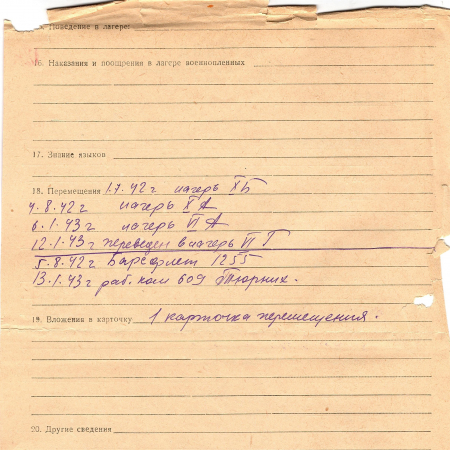 15. Поведение в лагере:
16. Наказания и поощрения в лагере военнопленных
17. Знание языков
18. Перемещения 1.7.42 г лагерь XБ
4.8.42 г лагерь X А
6.1.43 г лагерь II А
12.1.43 г переведен в лагерь II Г
5.8.42 г Барсфлет 1255
13.1.43 г раб. ком 609
19. Вложения в карточку 1 карточка перемещения.
20. Другие сведения